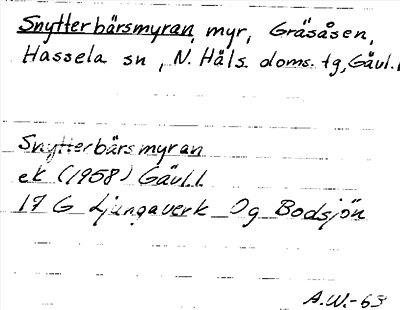 Snytterbärsmyran, myr, Gräsåsen,
Hassela sn, N. Häls. doms. tg, Gävl.
Snytterbärsmyran
ek (1958) Gävl.l.
17 G Ljungaverk Og Bodsjön
A.W.-63